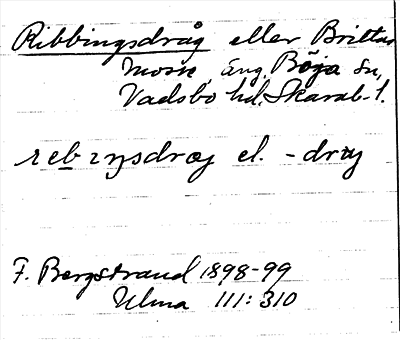 Ribbingsdråg eller Brittas
mosse, äng, Böja sn,
Vadsbo hd, Skarab. l.
rebıŋsdræg el. -drag
F. Bergstrand 1898-99
Ulma 111:310